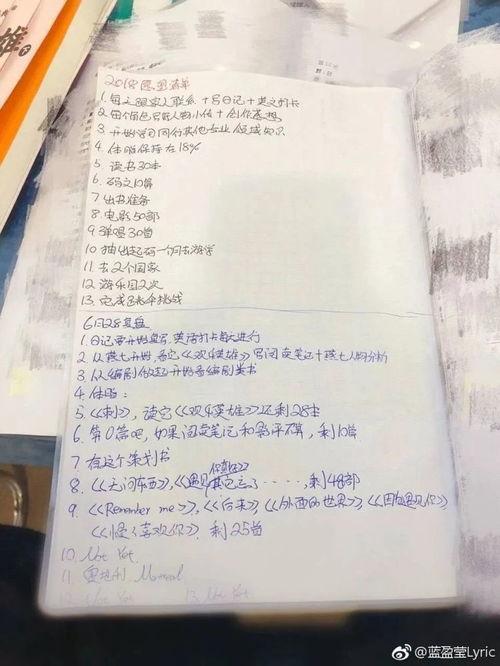 雄
2018愿望清单
1. 每天跟家人联系+写日记+英文打卡
2. 每个角色写好人物小传+创作感想
3. 开始学习同行其他专业领域知识
4. 体脂保持在18%
5. 读书30本
6. 码文10篇
7 出书准备
8 电影50部
9 弹唱30首
10 抽出起码一个月去游学
11. 去2个国家
12 游乐园2次
13. 完成8挑战
6月28复盘
1. 日记要开始写, 英语打卡每天进行
2 从燕七开始, 看完《欢乐英雄》写阅读笔记+燕七人物分析
3. 从编剧做起开始看编剧类书
4. 体脂:
5. 《刺》, 读完《欢乐英雄》还剩28本
6. 第0篇吧, 如果阅读笔记和影评不算, 剩10篇
7 有这个策划书
8. 《无问东西》, 《遇见你真好》其它忘了······, 剩48部
9. 《Remember me》, 《后来》, 《外面的世界》, 《因为遇见你》
《怪你喜欢你》. 剩25首
10. Not Yet
11. 奥地利
12 Not Yet 13. Not Yet
@蓝盈莹Lyric